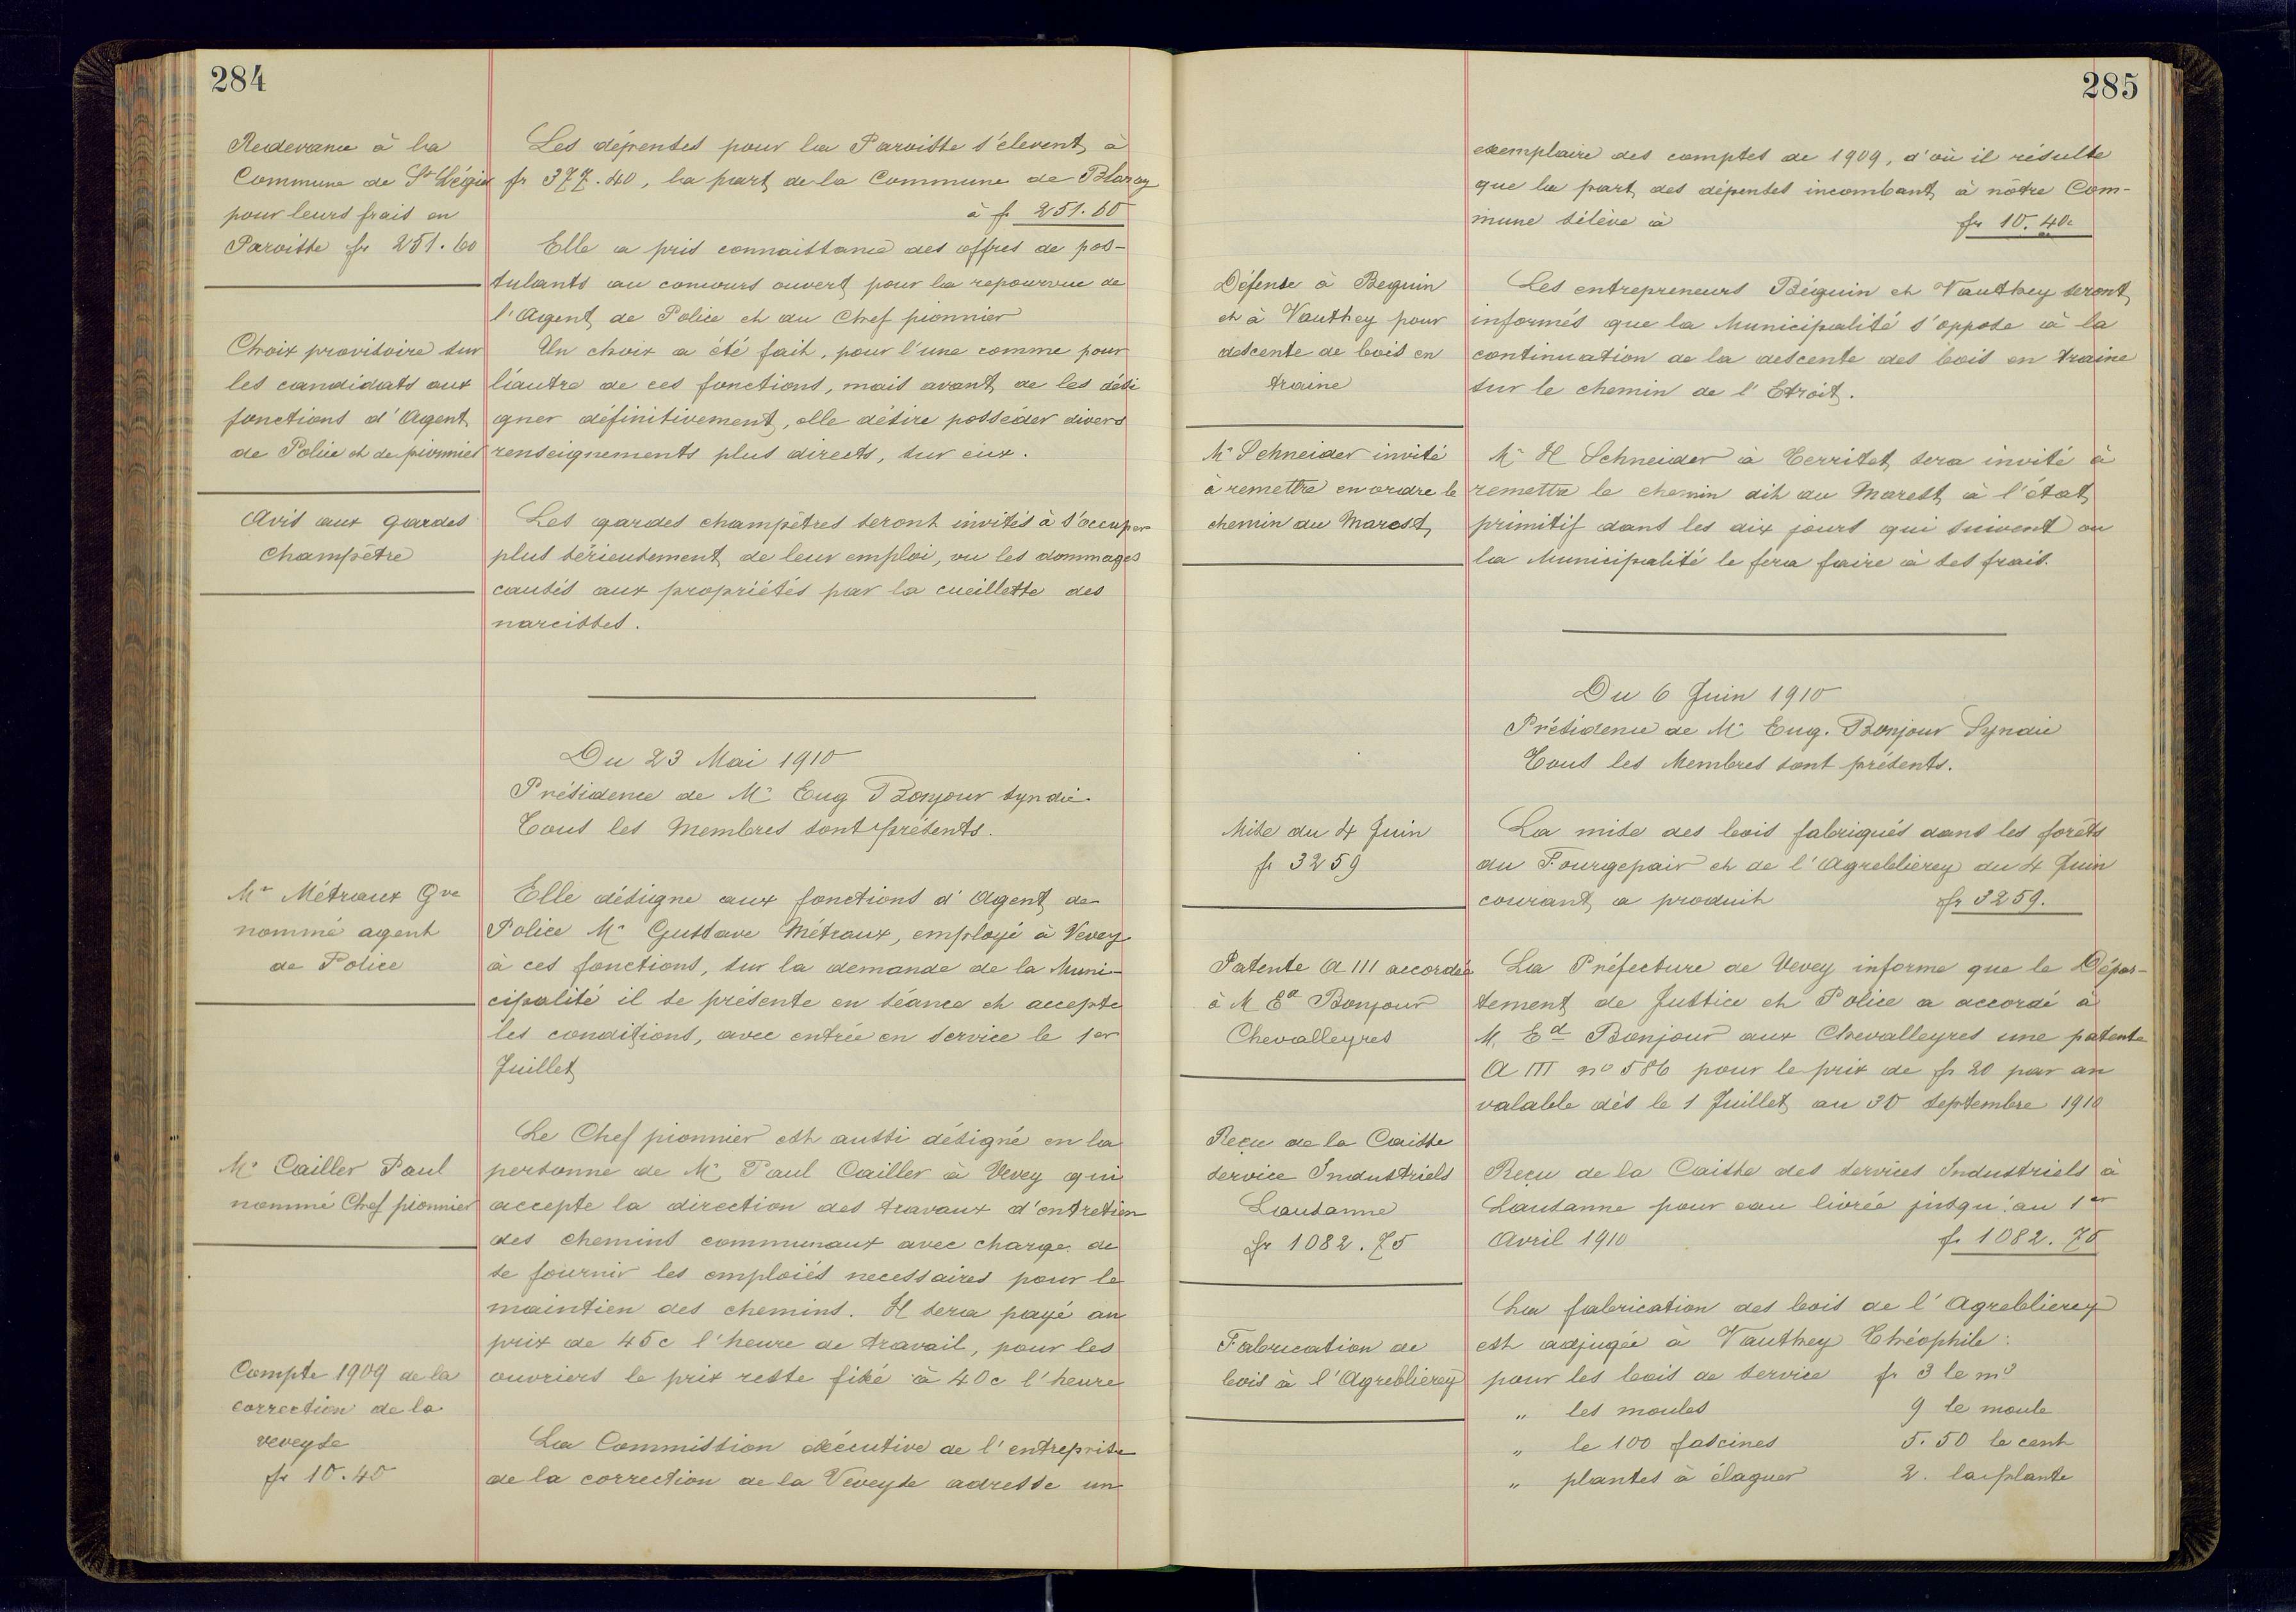 284
Redevance à la
Commune de St Légier
pour leurs frais en
Paroisse fr 251.60
Les dépenses pour la Paroisse s'élevent à
fr 377.40, la part de la Commune de Blonay
à fr 251.60
Elle a pris connaissance des offres de pos-
tulants au concours ouvert pour la repourvue de
l'Agent de Police et du Chef pionnier
Choix provisoire sur
les candidats aux
fonctions d'Agent
de Police et de pionnier
Un choix a été fait, pour l'une comme pour
l'autre de ces fonctions, mais avant de les dési
gner définitivement, elle désire posséder divers
renseignements plus directs, sur eux.
Avis aux gardes
champêtre
Les gardes champêtres seront invités à s'occuper
plus sérieusement de leur emploi, vu les dommages
causés aux propriétés par la cueillette des
narcisses.
Du 23 Mai 1910
Présidence de Mr Eug Bonjour syndic.
Tous les Membres sont présents.
Mr Métraux Gve
nommé agent
de Police
Elle désigne aux fonctions d'Agent de
Police Mr Gustave Métraux, employé à Vevey
à ces fonctions, sur la demande de la Muni-
cipalité il se présente en séance et accepte
les conditions, avec entrée en service le 1er
Juillet
Mr Cailler Paul
nommé Chef pionnier
Le Chef pionnier est aussi désigné en la
personne de Mr Paul Cailler à Vevey qui
accepte la direction des travaux d'entretien
des chemins communaux avec charge de
se fournir les emploiés necessaires pour le
maintien des chemins. Il sera payé au
prix de 45c l'heure de travail, pour les
ouvriers le prix reste fixé à 40c l'heure
Compte 1909 de la
correction de la
veveyse
fr 10.40
La Commission exécutive de l'entreprise
de la correction de la Veveyse adresse un
285
exemplaire des comptes de 1909, d'où il résulte
que la part des dépenses incombant à nôtre Com-
mune s'élève à fr 10.40c
Défense à Beguin
et à Vauthey pour
descente de bois en
traine
Les entrepreneurs Béguin et Vauthey seront
informés que la Municipalité s'oppose à la
continuation de la descente des bois en traine
sur le chemin de l'Etroit.
Mr Schneider invité
à remettre en ordre le
chemin du Marest
Mr H Schneider à Territet sera invité à
remettre le chemin dit du Marest à l'état
primitif dans les dix jours qui suivent ou
la Municipalité le fera faire à ses frais.
Du 6 Juin 1910
Présidence de Mr Eug. Bonjour Syndic
Tous les Membres sont présents.
Mise du 4 Juin
fr 3259
La mise des bois fabriqués dans les forêts
du Fourgepair et de l'Agreblierey du 4 Juin
courant a produit fr 3259.
Patente A III accordée
à M Ed Bonjour
Chevalleyres
La Préfecture de Vevey informe que le Dépar-
tement de Justice et Police a accordé à
M. Ed Bonjour aux Chevalleyres une patente
A III no 586 pour le prix de fr 20 par an
valable dès le 1 Juillet au 30 septembre 1910
Reçu de la Caisse
service Industriels
Lausanne
fr 1082.75
Reçu de la Caisse des services Industriels à
Lausanne pour eau livrée jusqu'au 1er
Avril 1910 fr 1082.75
Fabrication de
bois à l'Agreblierey
La fabrication des bois de l'Agreblierey
est adjugée à Vauthey Théophile:
pour les bois de service fr 3 le m3
" les moules 9 le moule
" le 100 fascines 5.50 le cent
" plantes à élaguer 2. la plante